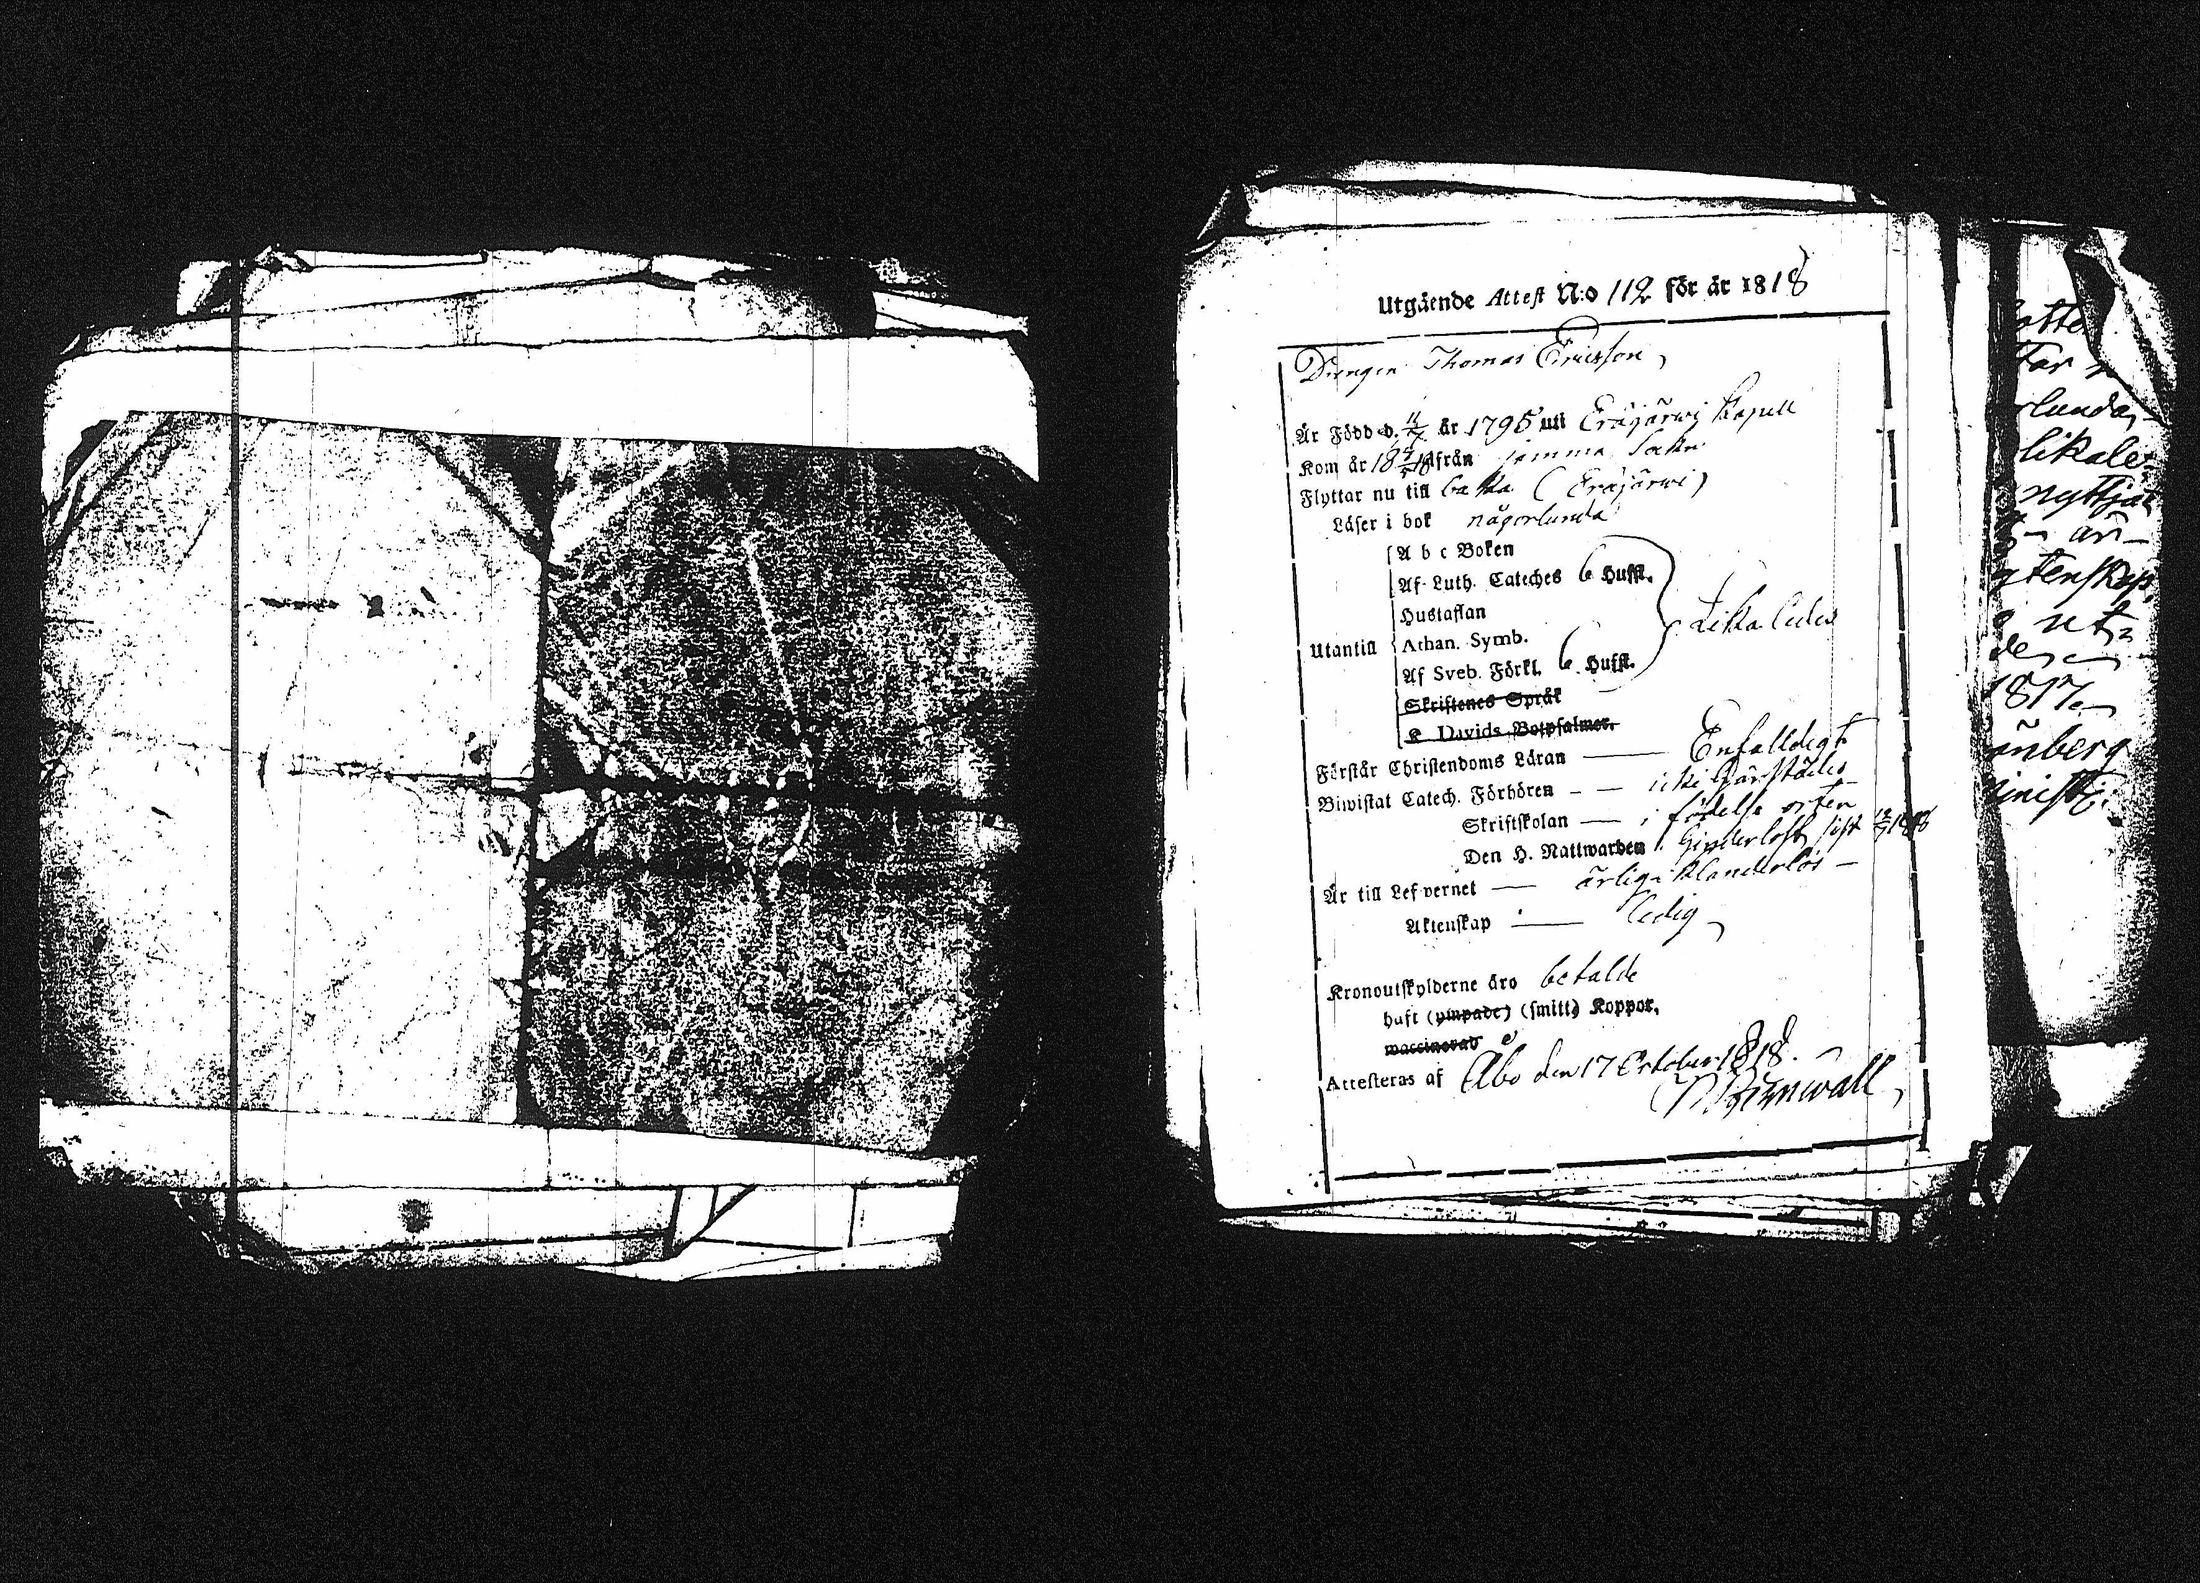 Utgående Attest N:o 112 för år 1818
Drengen Thomas Ericsson,
Är Född d. 11/7 år 1795 uti Eräjärwi Kapell
Kom år 18 18 ifrån samma Sokn
Flyttar nu till baka (Eräjärwi)
Läser i bok någorlunda
A b c Boken
Af Luth. Cateches 6 Hufst.
Hustaflan
Utantill Athan. Symb. Lika ledes
Af Sveb. Förkl. 6 Hufst.
Skriftenes Språk
Davids Botpsalmer.
Förstår Christendoms Läran — Enfalldigt
Biwistat Catech. Förhören — — icke härstädes
Skriftskolan — i födelse orten
Den H. Nattwarden sist 1818
Är till Lefvernet — ärlig klanderlös —
Äktenskap — ledig
Kronoutskylderne äro betalde
haft (ympade) (smitt) Koppor.
waccinerad
Attesteras af Åbo den 17 October 1818.
otte
Far
rlunda,
likale-
nyttjat
är
gtenskap,
ut-
des
1817
änberg
inist: